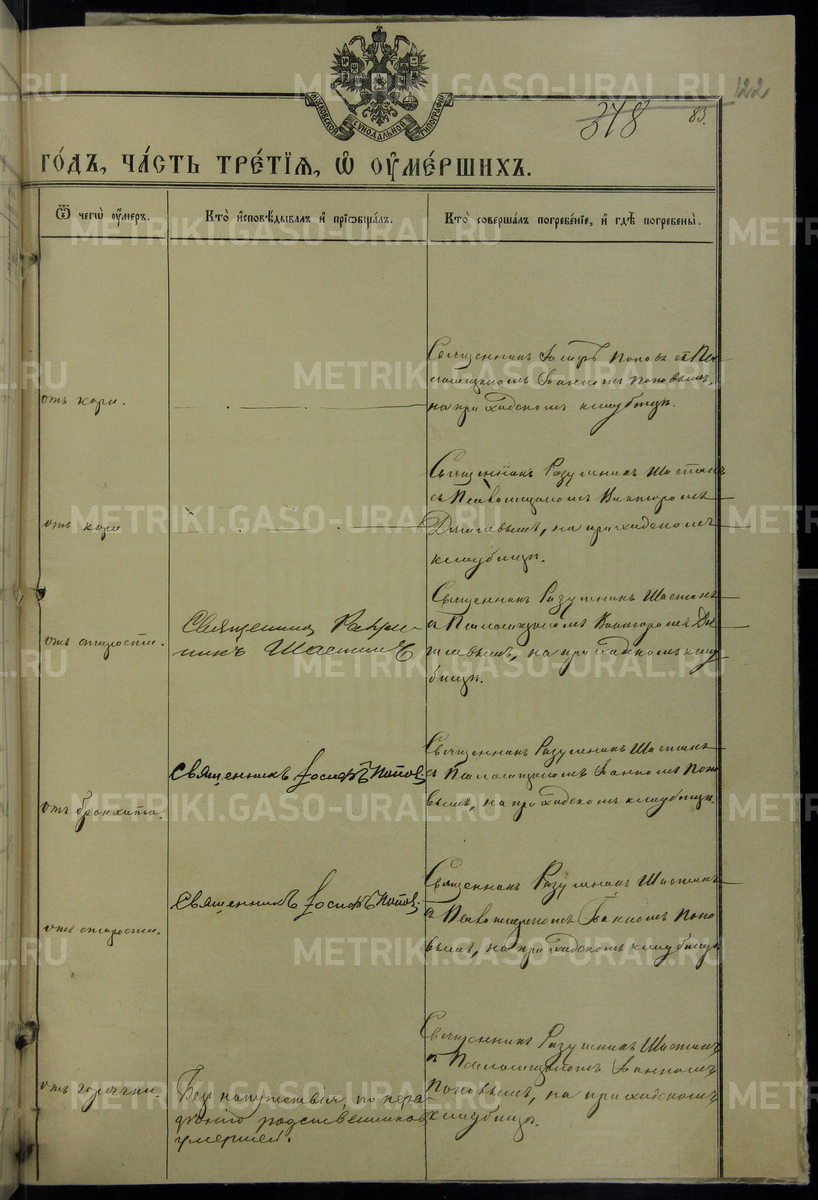 METRIKI.GASO-URAL.RU
122
378
83.
МОСКОВСКОЙ СѴНОДАЛЬНОЙ ТИПОГРАФІИ
ГО́ДЪ, ЧА́СТЬ ТРЕ́ТІѦ, Ѽ ОУМЕ́РШИХЪ.
Ѿ чегѡ̀ ᲂу҆́меръ.
Кто̀ и҆сповѣ́дывалъ и҆ прїѡбща́лъ.
Кто̀ соверша́лъ погребе́нїе, и҆ гдѣ̀ погребены̀.
отъ кори.
Священникъ Іосифъ Поповъ съ Пса-
ломщикомъ Іоанномъ Поповымъ,
на приходскомъ кладбищѣ.
отъ кори
Священникъ Разумникъ Шастинъ
съ Псаломщикомъ Викторомъ
на приходскомъ
кладбищѣ.
отъ старости.
Священникъ Разум-
никъ Шастинъ
Священникъ Разумникъ Шастинъ
съ Псаломщикомъ Викторомъ
на приходскомъ клад-
бищѣ.
отъ бронхита.
Священникъ Іосифъ Поповъ
Священникъ Разумникъ Шастинъ
съ Псаломщикомъ Іоанномъ Попо-
вымъ, на приходскомъ кладбищѣ.
отъ старости.
Священникъ Іосифъ Поповъ
Священникъ Разумникъ Шастинъ
съ Псаломщикомъ Іоанномъ Попо-
вымъ, на приходскомъ кладбищѣ
отъ горячки.
Безъ напутствія, по нера-
дѣнію родственниковъ
умершей.
Священникъ Разумникъ Шастинъ
съ Псаломщикомъ Іоанномъ
Поповымъ, на приходскомъ
кладбищѣ.